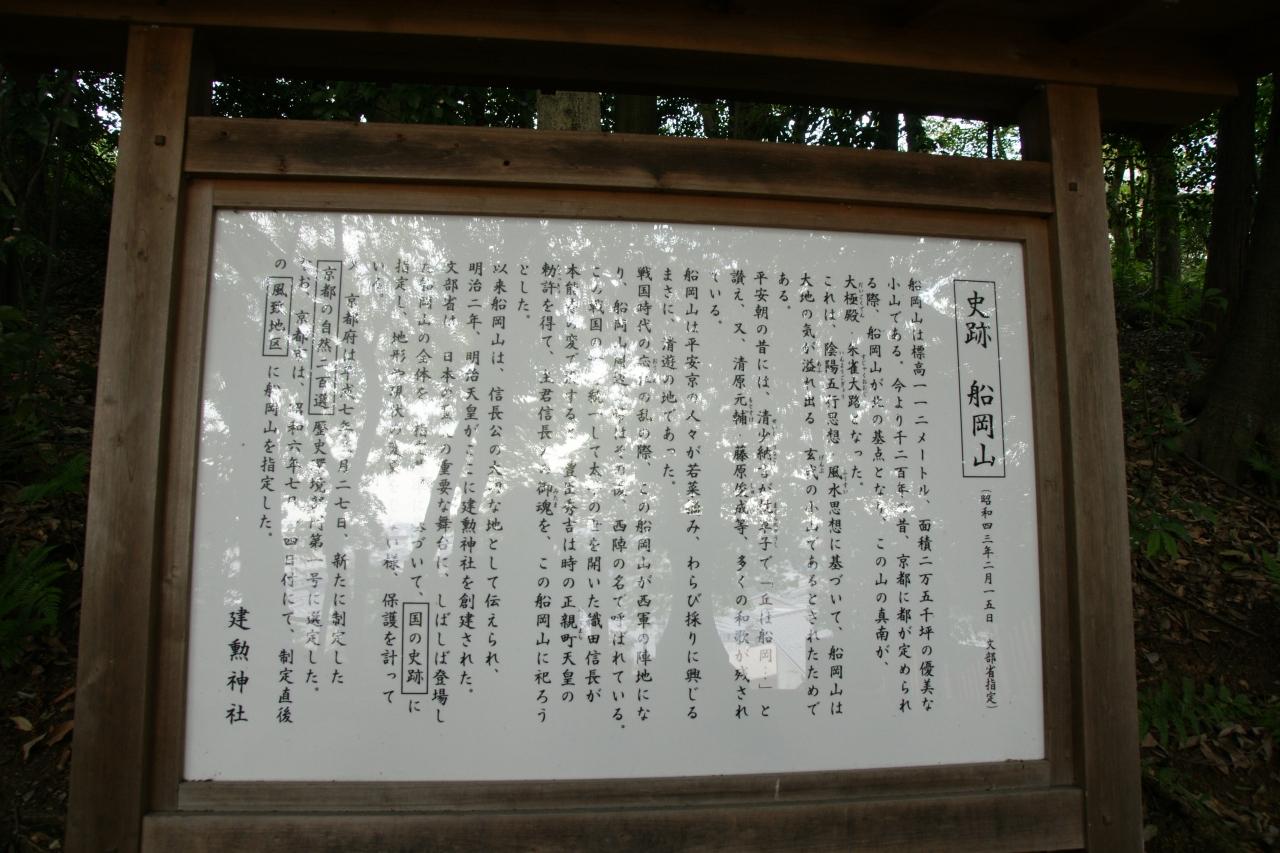 史跡 船岡山 (昭和四三年二月一五日 文部省指定)
船岡山は標高一一二メートル、面積二万五千坪の優美な
小山である。今より千二百年昔、京都に都が定められ
る際、船岡山が北の基点となり、この山の真南が、
大極殿 朱雀大路となった。
これは、陰陽五行思想 風水思想に基づいて、船岡山は
大地の気が溢れ出る 玄武の小山であるとされたためで
ある。
平安朝の昔には、清少納言が枕草子で「丘は船岡…」と
讃え、又、清原元輔 藤原 等、多くの和歌が残され
ている。
船岡山は平安京の人々が若菜摘み、わらび採りに興じる
まさに、清遊の地であった。
戦国時代の応仁の乱の際、この船岡山が西軍の陣地にな
り、船岡山 西陣の名で呼ばれている。
この戦国の 統一して太 の世を開いた織田信長が
本能寺の変で する 豊臣秀吉は時の正親町天皇の
勅許を得て、主君信長 御魂を、この船岡山に祀ろう
とした。
以来船岡山は、信長公の 地として伝えられ、
明治二年、明治天皇が ここに建勲神社を創建された。
文部省は、日本の の重要な舞台に、しばしば登場し
た船岡山の全体を、 づいて、国の史跡に
指定し、地形や現状の 様、保護を計って
いる。
京都府は平成七年 月二七日、新たに制定した
京都の自然二百選 歴史環境部門第一号に選定した。
なお、京都 は、昭和六年七 四日付にて、制定直後
の 風致地区 に船岡山を指定した。
建勲神社